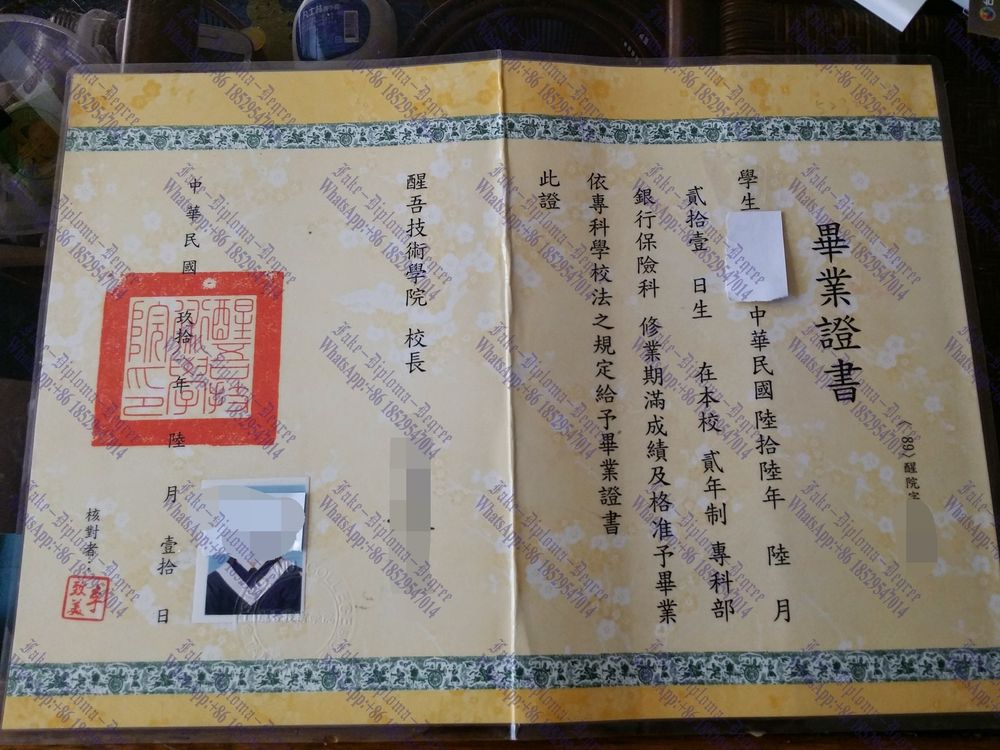 (89)醒院字
畢業證書
學生 中華民國陸拾陸年 陸 月
貳拾壹 日生 在本校 貳年制 專科部
銀行保險科 修業期滿成績及格准予畢業
依專科學校法之規定給予畢業證書
此證
醒吾技術學院 校長
中華民國玖拾年陸月壹拾日
核對者:
Fake-Diploma-Degree
WhatsApp:+86 18529547014